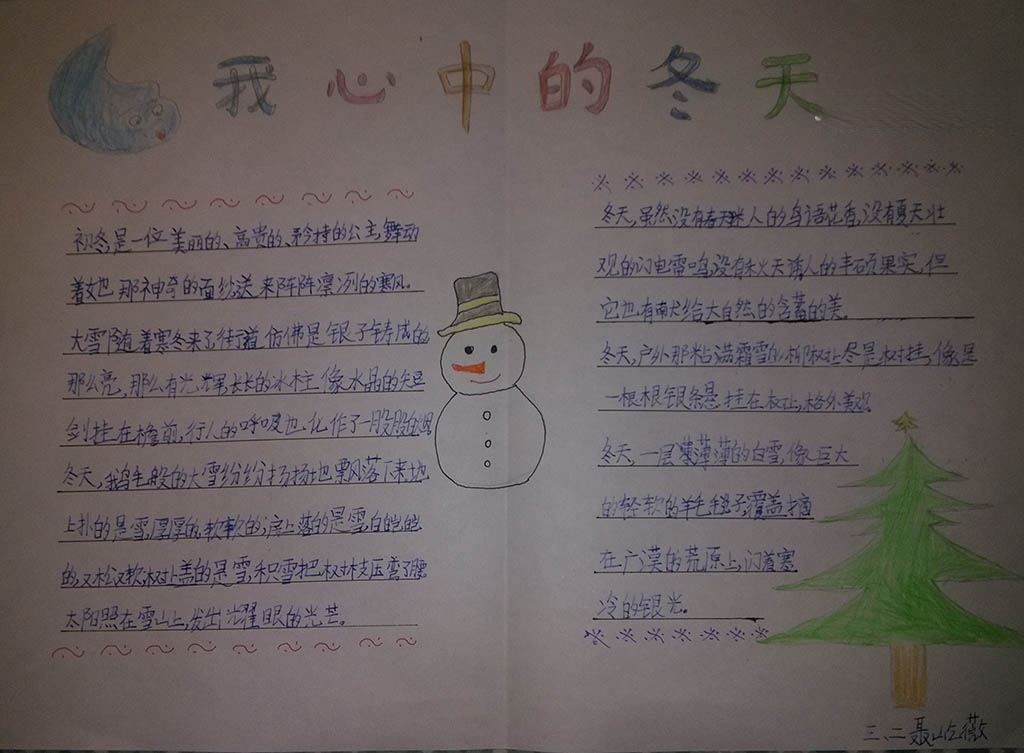 我心中的冬天
初冬,是一位美丽的、高贵的、矜持的公主,舞动
着她那神奇的面纱送来阵阵凛冽的寒风。
大雪随着寒冬来了,街道仿佛是银子铸成的
那么亮,那么有光辉,长长的冰柱像水晶的短
剑挂在檐前,行人的呼吸也化作了一股股白烟
冬天,鹅毛般的大雪纷纷扬扬地飘落下来,地
上扑的是雪,厚厚的,软软的;房上落的是雪,白皑皑
的,又松又软;树上盖的是雪,积雪把树枝压弯了腰
太阳照在雪山上,发出耀眼的光芒。
冬天,虽然没有春天迷人的鸟语花香,没有夏天壮
观的闪电雷鸣,没有秋天诱人的丰硕果实,但
它也有献给大自然的含蓄的美。
冬天,户外那粘满霜雪的柳树上尽是树挂,像是
一根根银条悬挂在树上,格外美观
冬天,一层薄薄的白雪,像巨大
的轻软的羊毛毯子覆盖摘
在广漠的荒原上,闪着寒
冷的银光。
三、二聂屹薇